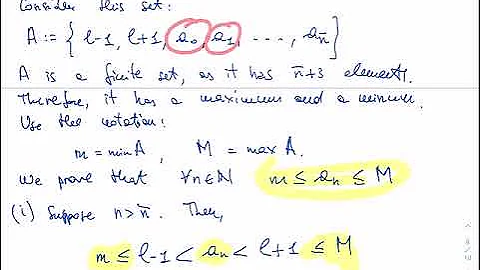 Consider this set:
A := { l-1, l+1, a₀, a₁, ----, a_n̄ }
A is a finite set, as it has n̄+3 elements.
Therefore, it has a maximum and a minimum.
Use the notation:
m = min A, M = max A.
We prove that ∀n∈ℕ m ≤ aₙ ≤ M
(i) Suppose n > n̄. Then,
m ≤ l-1 < aₙ < l+1 ≤ M